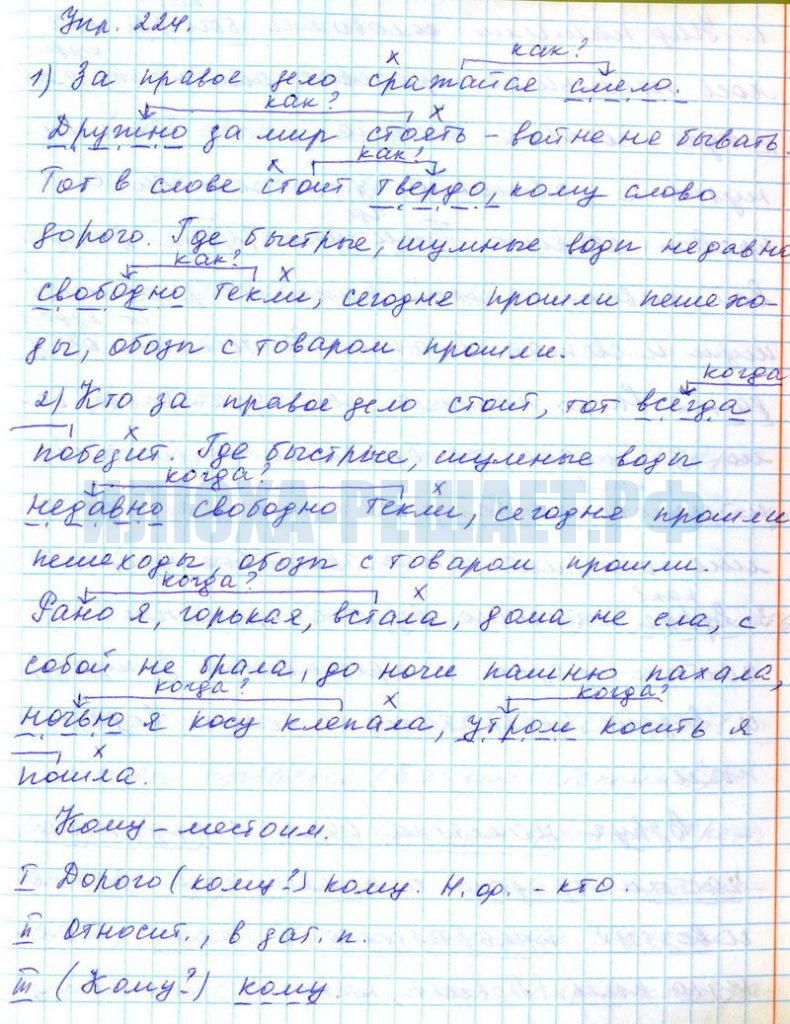 Упр. 224.
как?
1) За правое дело сражайся смело.
как?
Дружно за мир стоять – войне не бывать.
как?
Тот в слове стоит твёрдо, кому слово
дорого. Где быстрые, шумные воды недавно
как?
свободно текли, сегодня прошли пешехо-
ды, обозы с товаром прошли.
когда
2) Кто за правое дело стоит, тот всегда
победит. Где быстрые, шумные воды
когда?
недавно свободно текли, сегодня прошли
пешеходы, обозы с товаром прошли.
когда?
Рано я, горькая, встала, дома не ела, с
собой не брала, до ночи пашню пахала,
когда? когда?
ночью я косу клепала, утром косить я
пошла.
Кому – местоим.
I Дорого (кому?) кому. Н.ф. – кто.
II Относит., в дат. п.
III (Кому?) кому.
ИЛЮХА-РЕШАЕТ.РФ